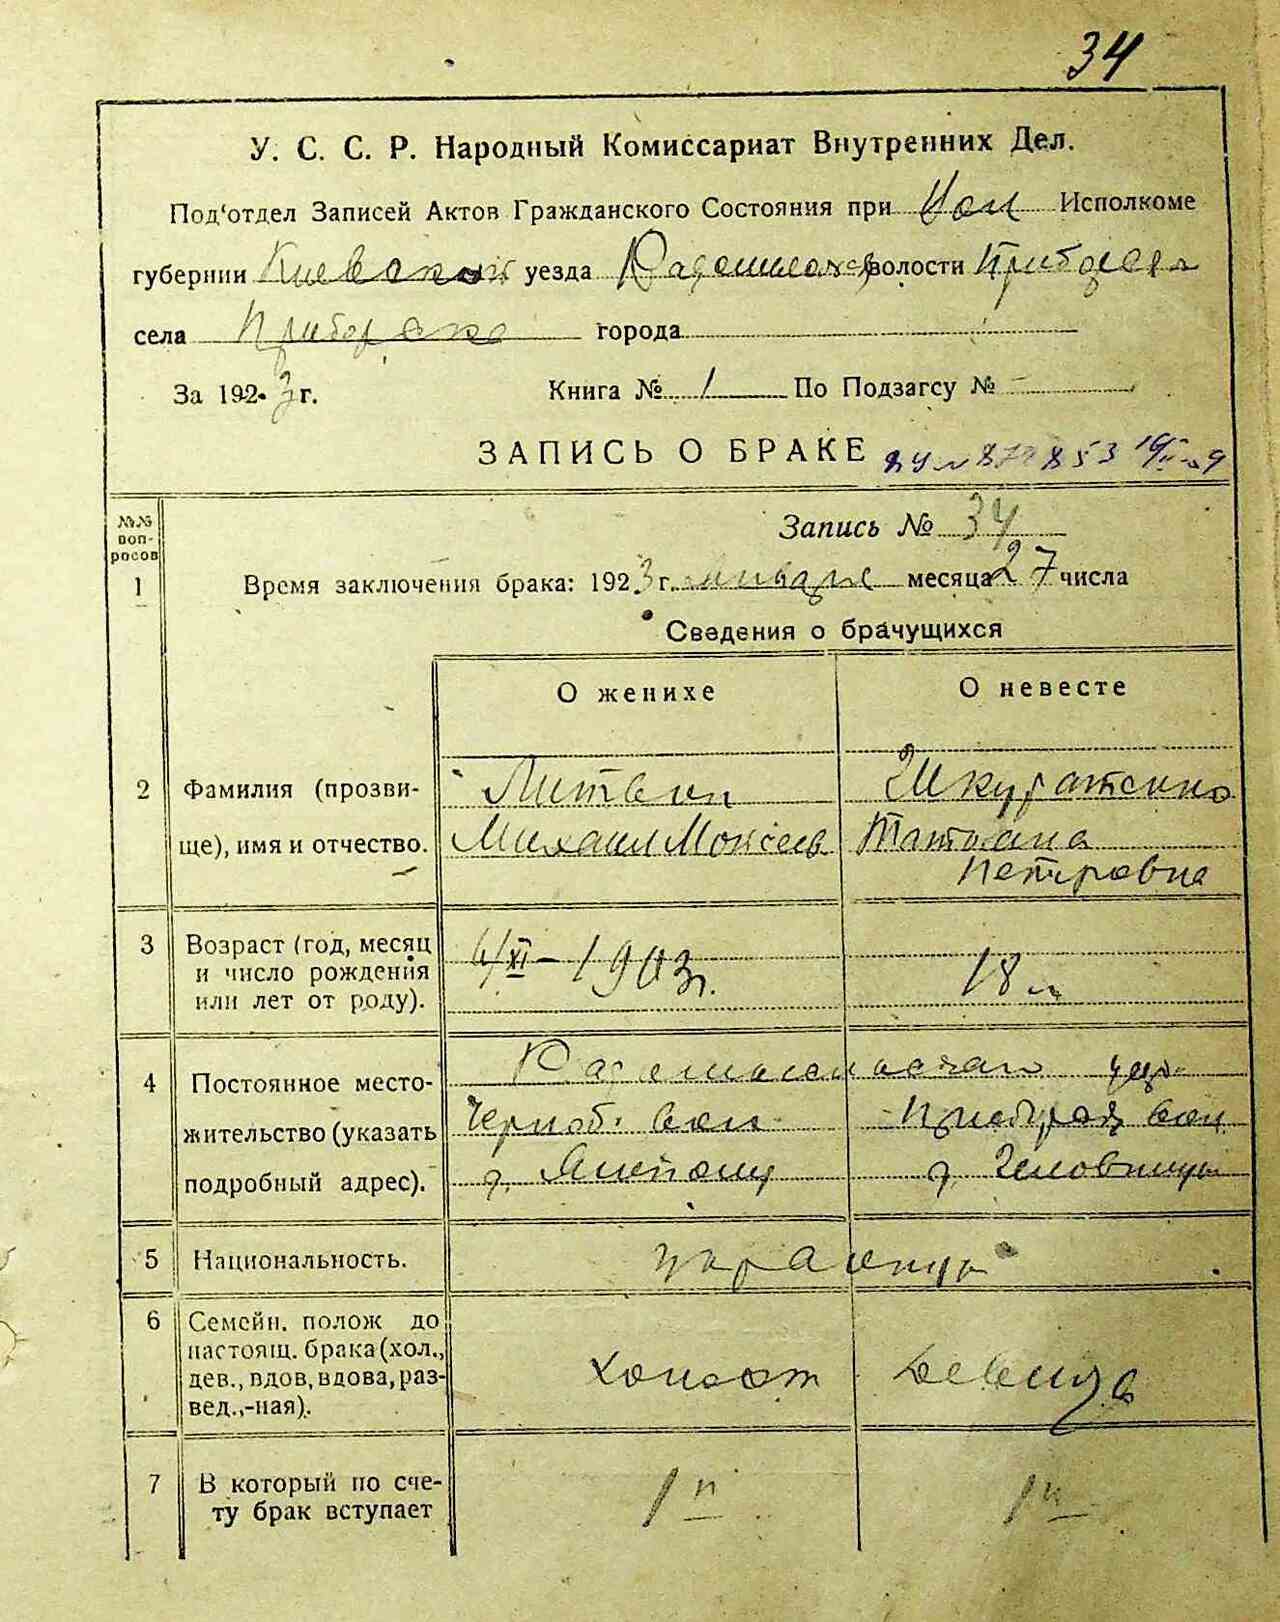 34
У. С. С. Р. Народный Комиссариат Внутренних Дел.
Под'отдел Записей Актов Гражданского Состояния при Вол Исполкоме
губернии Киевской уезда волости
села города
За 1923 г. Книга № 1 По Подзагсу № -
ЗАПИСЬ О БРАКЕ
№№ воп-
росов
Запись № 34
1 Время заключения брака: 1923 г. января месяца 27 числа
Сведения о брачущихся
О женихе О невесте
2 Фамилия (прозви- Литвин Шкуратенко
ще), имя и отчество. Михаил Моисеев Татиана
Петровна
3 Возраст (год, месяц
и число рождения XI – 1903 г. 18 л
или лет от роду).
4 Постоянное место-
жительство (указать Черноб. вол
подробный адрес). д. д.
5 Национальность. украинцы
6 Семейн. полож до
настоящ. брака (хол., холост девица
дев., вдов, вдова, раз-
вед.,-ная).
7 В который по сче- 1й 1й
ту брак вступает